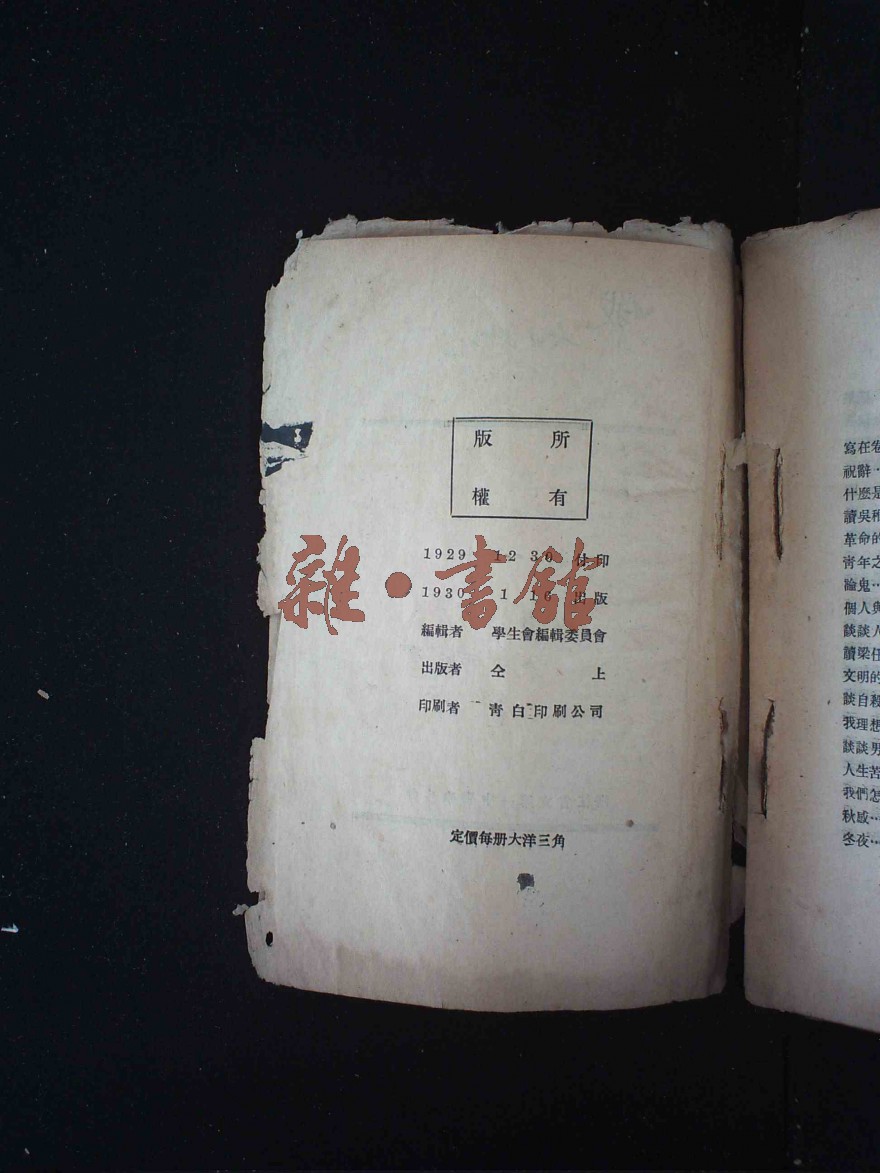 版 所
權 有
1929 12 30 付印
1930 1 16 出版
編輯者 學生會編輯委員會
出版者 仝上
印刷者 青白印刷公司
定價每册大洋三角
雜·書館
寫在卷
祝辭
什麼是
讀吳稚
革命的
青年之
論鬼…
個人與
談談人
讀梁任
文明的
談自殺
我理想
談談男
人生苦
我們怎
秋感…
冬夜…